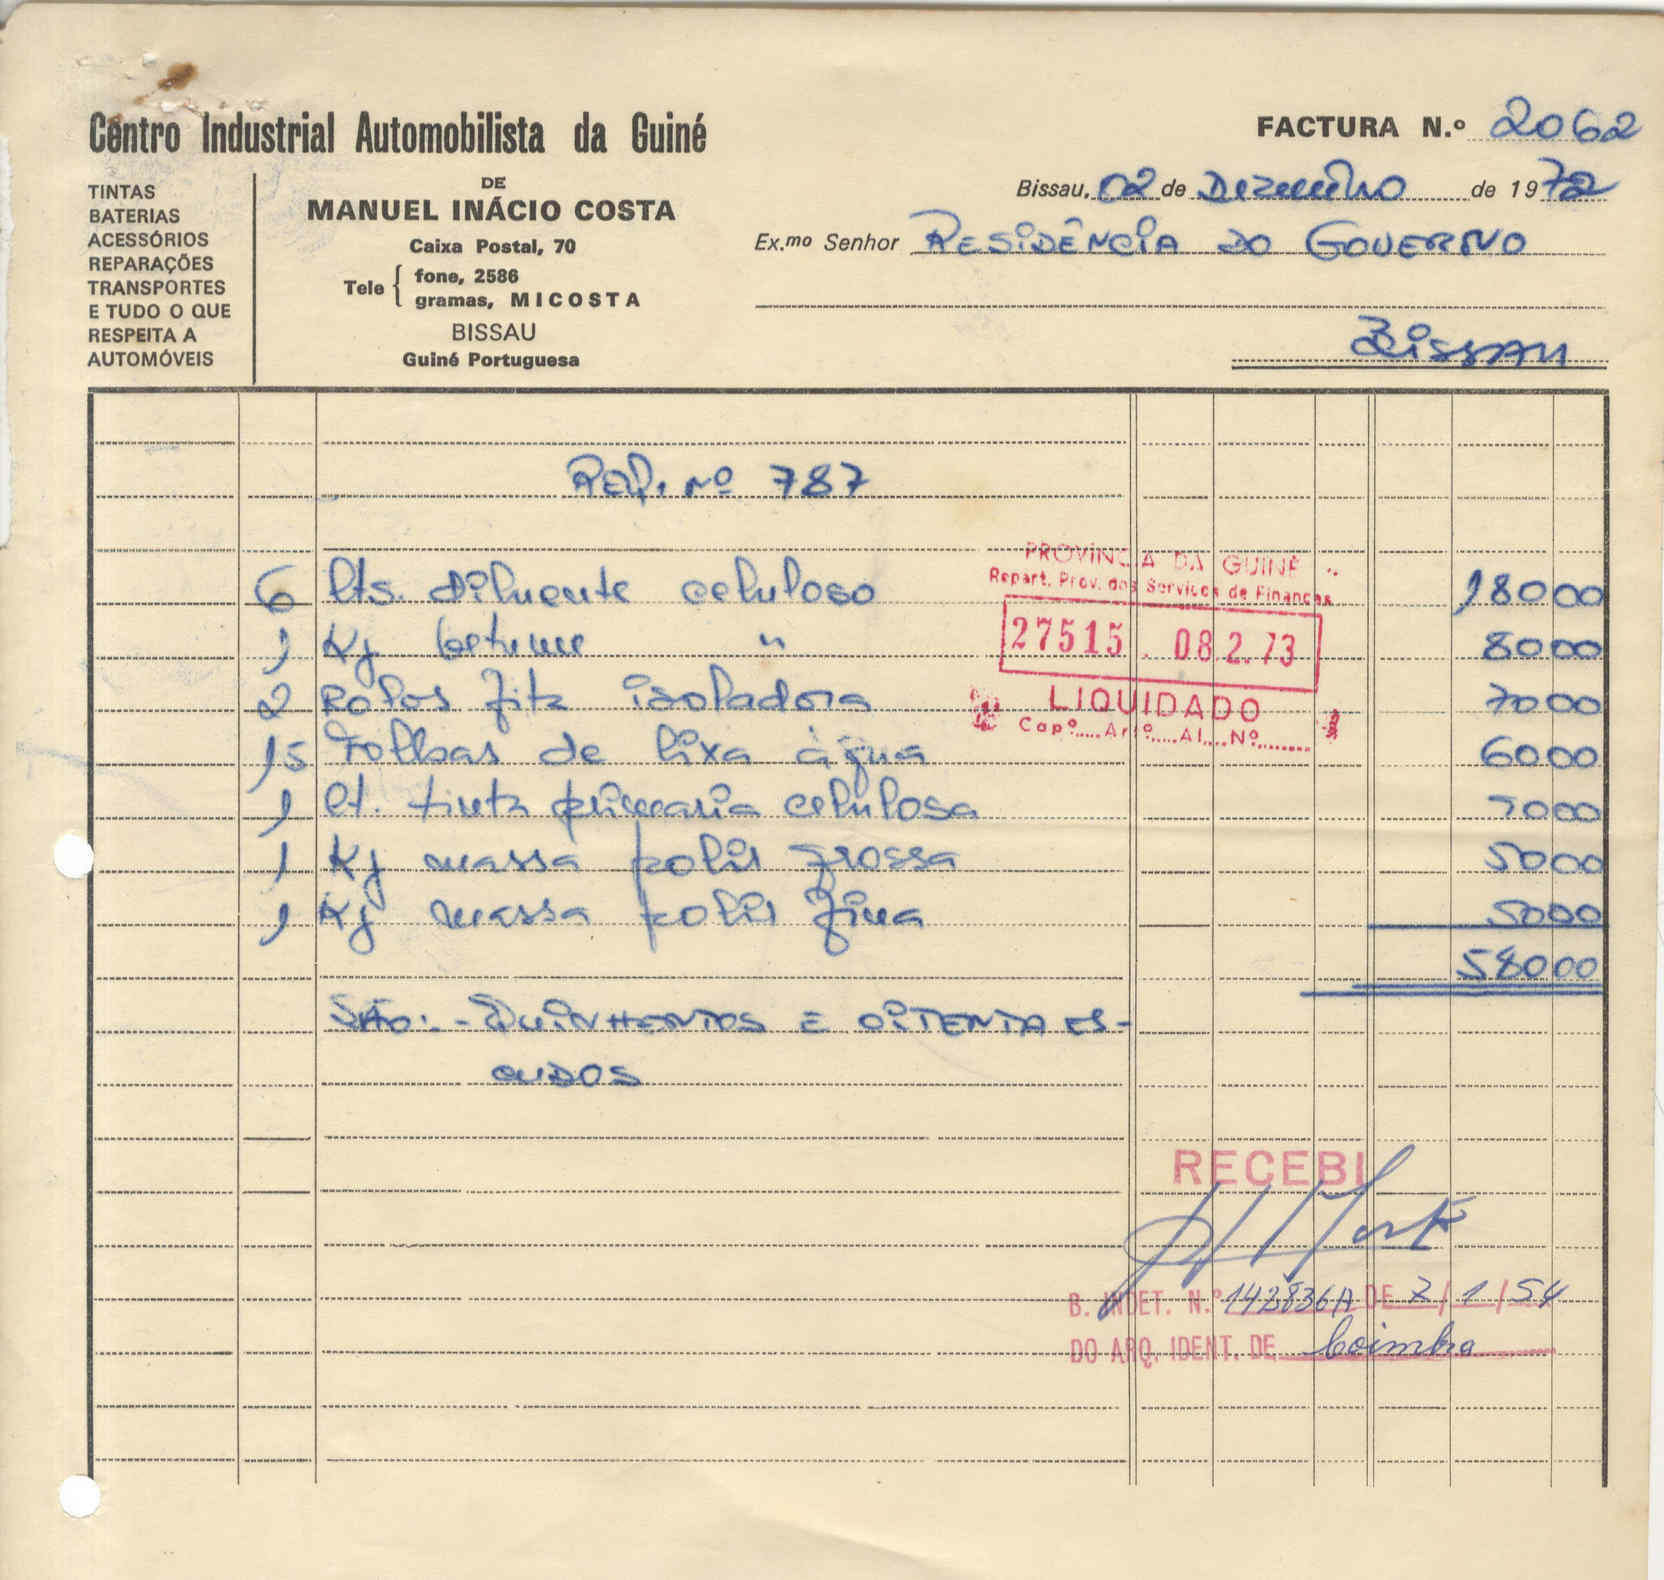 Centro Industrial Automobilista da Guiné
FACTURA N.º 2062
TINTAS
BATERIAS
ACESSÓRIOS
REPARAÇÕES
TRANSPORTES
E TUDO O QUE
RESPEITA A
AUTOMÓVEIS
DE
MANUEL INÁCIO COSTA
Caixa Postal, 70
Tele { fone, 2586
gramas, MICOSTA
BISSAU
Guiné Portuguesa
Bissau, 02 de Dezembro de 1972
Ex.mo Senhor RESIDÊNCIA DO GOVERNO
BISSAU
REQ. Nº 787
6 lts. diluente celuloso 18000
1 Kg betume " 8000
2 Rolos fita isoladora 7000
15 Folhas de lixa água 6000
1 lt. tinta primaria celulosa 7000
1 Kg massa polir grossa 5000
1 Kg massa polir fina 5000
58000
SÃO: - QUINHENTOS E OITENTA ES-
CUDOS
PROVÍNCIA DA GUINÉ
Repart. Prov. dos Serviços de Finanças
27515 . 08.2.73
LIQUIDADO
Capº.....Artº.....Al....Nº........
RECEBI
B. INDET. N.º 142836A DE 2/1/54
DO ARQ. IDENT. DE Coimbra